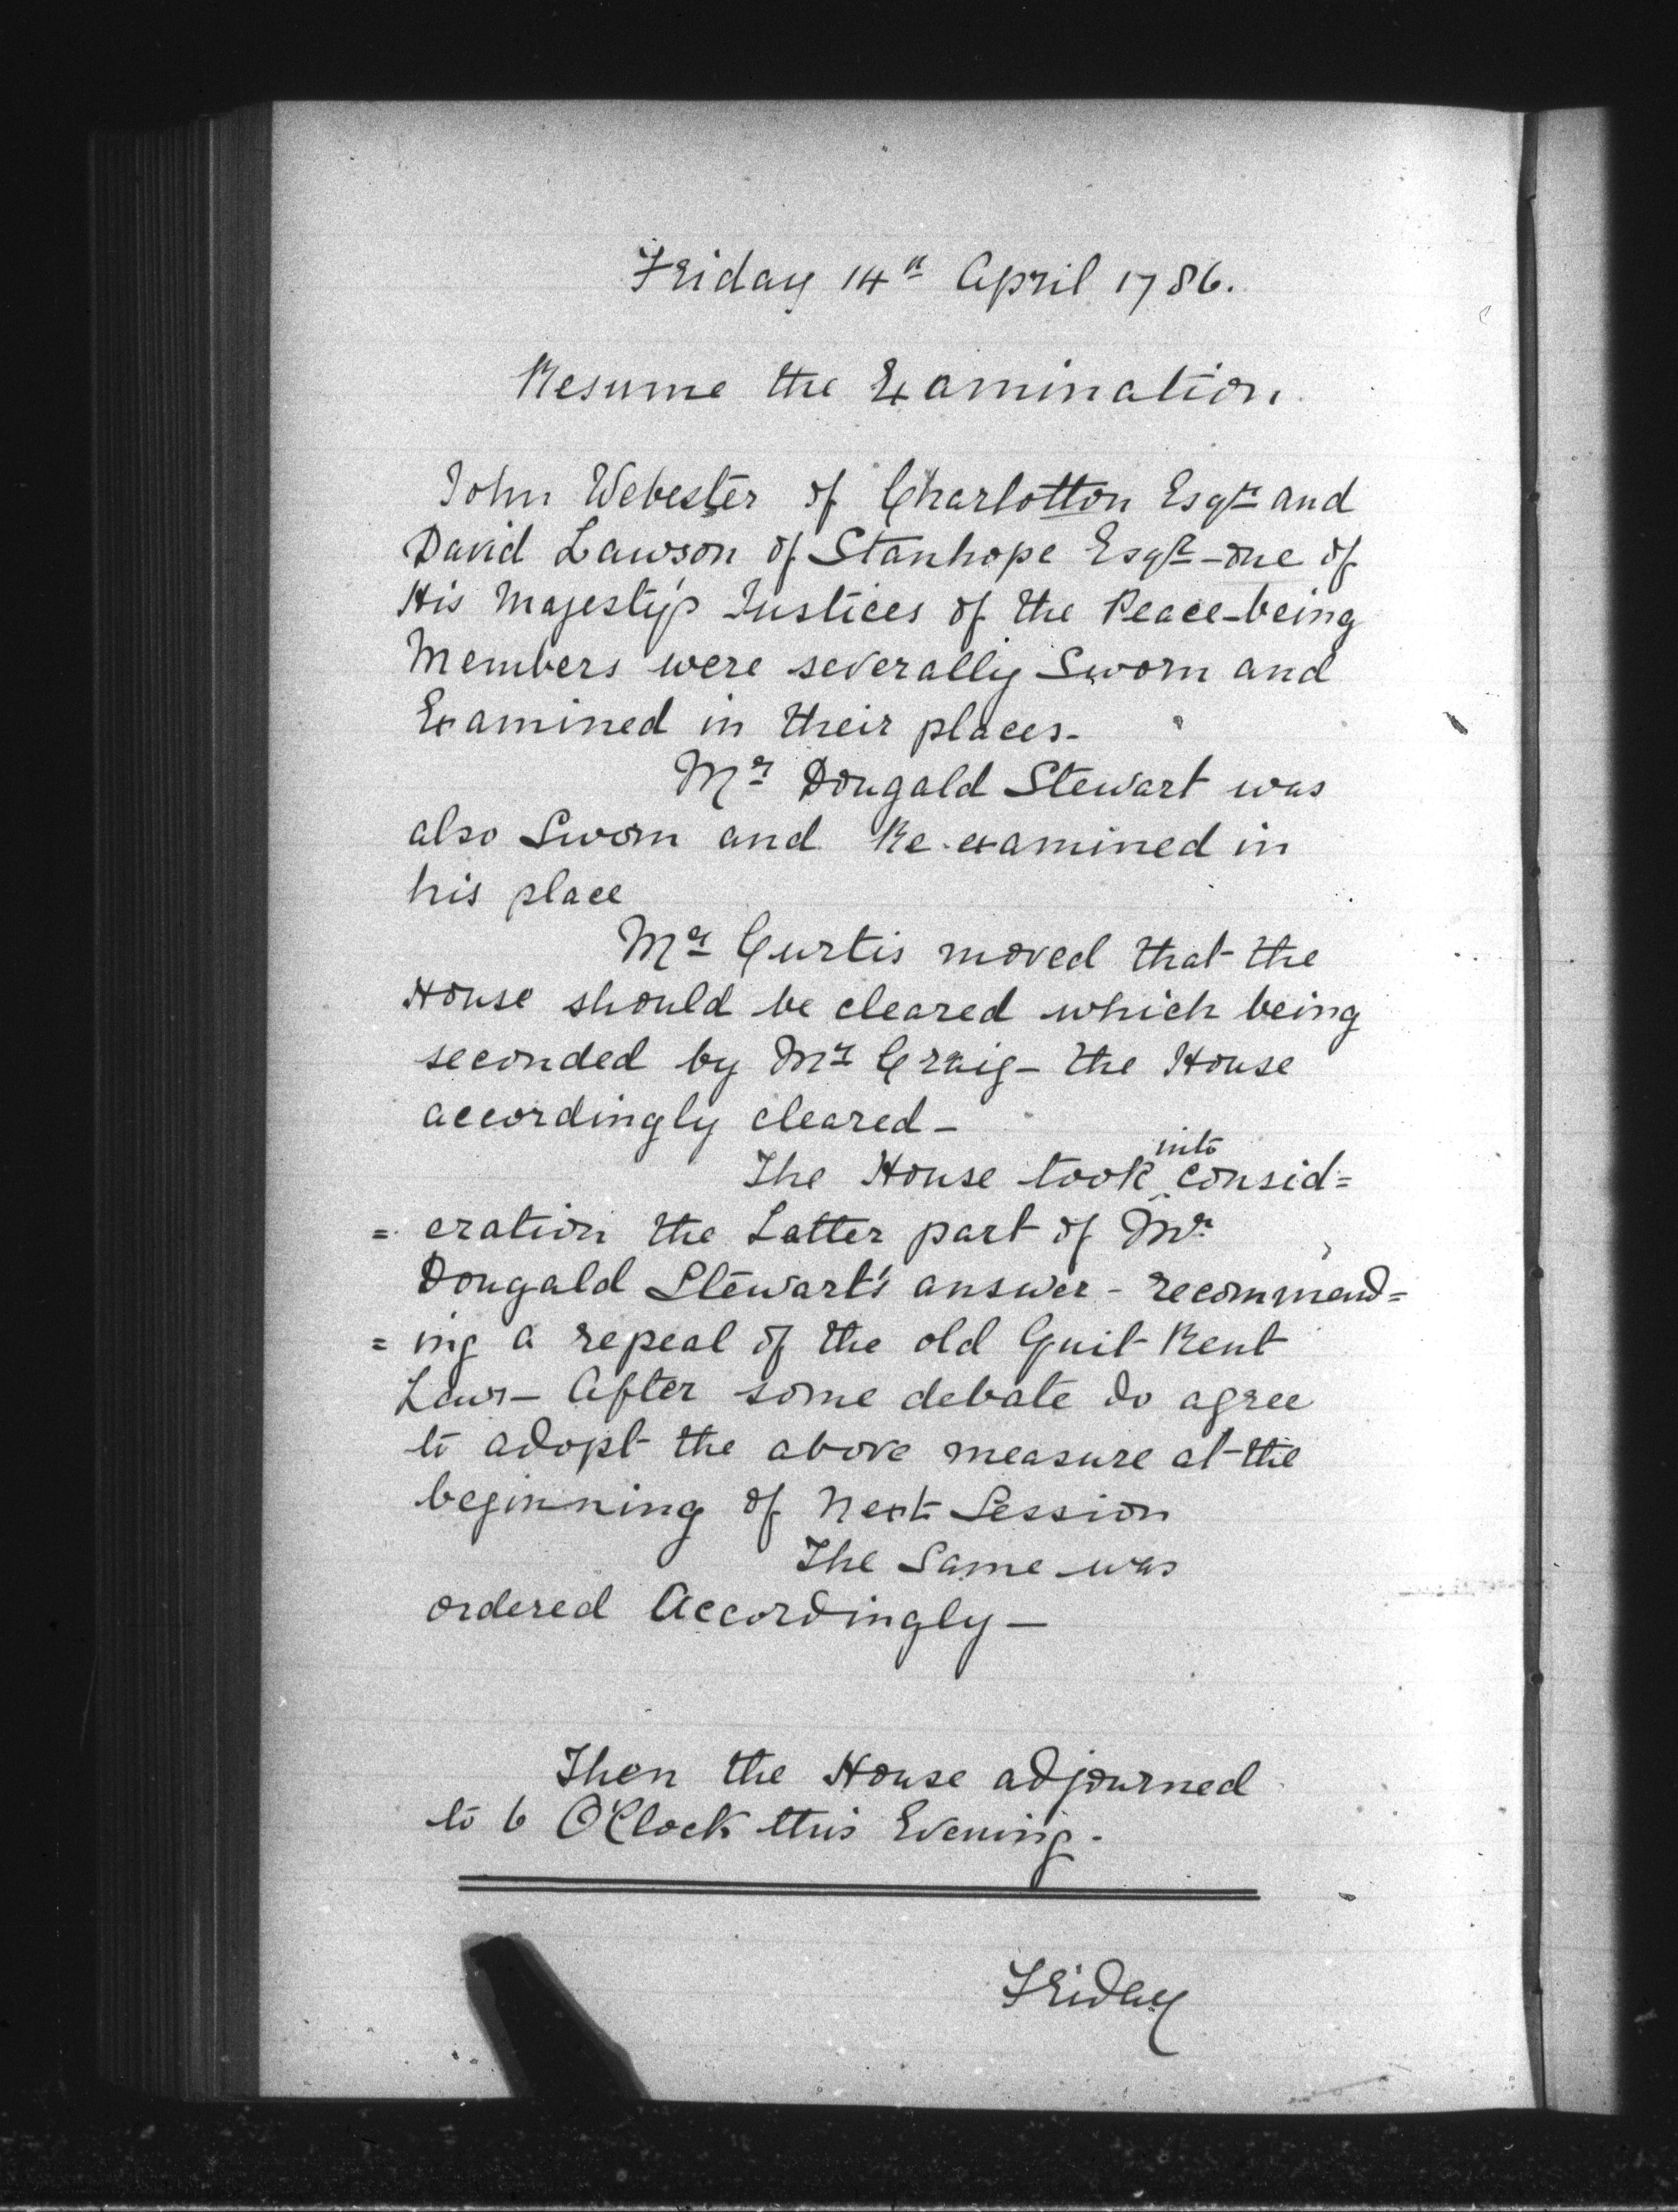 Friday 14th April 1786.
Resume the Examination.
John Webester of Charlotton Esqr and
David Lawson of Stanhope Esqr - one of
His Majesty's Justices of the Peace - being
Members were severally Sworn and
Examined in their places -
Mr Dougald Stewart was
also Sworn and Re-examined in
his place
Mr Curtis moved that the
House should be cleared which being
seconded by Mr Craig - the House
accordingly cleared -
The House took into consid=
= eration the Latter part of Mr
Dougald Stewart's answer - recommend=
= ing a repeal of the old Quit Rent
Law - After some debate do agree
to adopt the above measure at the
beginning of Next Session
The Same was
ordered Accordingly -
Then the House adjourned
to 6 O'Clock this Evening -
Friday